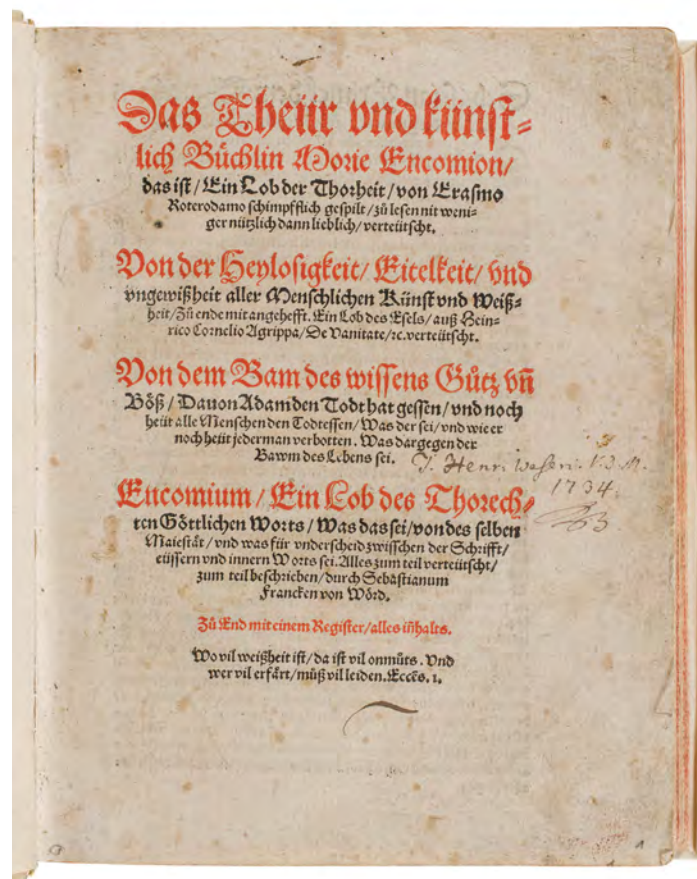 Das Theür vnd künſt⸗
lich Büchlin Morie Encomion/
das iſt/ Ein Lob der Thorheit/ von Eraſmo
Roterodamo ſchimpfflich geſpilt/ zů leſen nit weni⸗
ger nützlich dann lieblich/ verteütſcht.
Von der Heyloſigkeit/ Eitelkeit/ vnd
vngewißheit aller Menſchlichen Künſt vnd Weiß⸗
heit/ Zů ende mit angehefft. Ein Lob des Eſels/ auß Hein⸗
rico Cornelio Agrippa/ De Vanitate/ ꝛc. verteütſcht.
Von dem Bam des wiſſens Gůtz vn̄
Böß/ Dauon Adam den Todt hat geſſen/ vnd noch
heüt alle Menſchen den Todt eſſen/ Was der ſei/ vnd wie er
noch heüt jederman verbotten. Was dargegen der
Bawm des Lebens ſei.
J. Henr. Waſeri. V.D.M.
1734.
Encomium/ Ein Lob des Thorech⸗
ten Göttlichen Worts/ Was das ſei/ von des ſelben
Maieſtät/ vnd was für vnderſcheid zwiſſchen der Schrifft/
eüſſern vnd innern Worts ſei. Alles zum teil verteütſcht/
zum teil beſchrieben/ durch Sebaſtianum
Francken von Wörd.
Zů End mit einem Regiſter/ alles iñhalts.
Wo vil weißheit iſt/ da iſt vil onmůts. Vnd
wer vil erfärt/ můß vil leiden. Eccēs. 1.